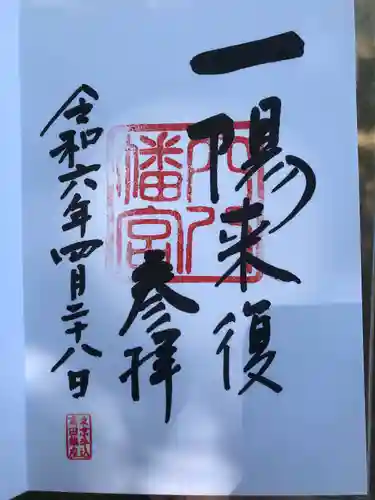 一陽来復
穴八幡宮
参拝
令和六年四月二十八日